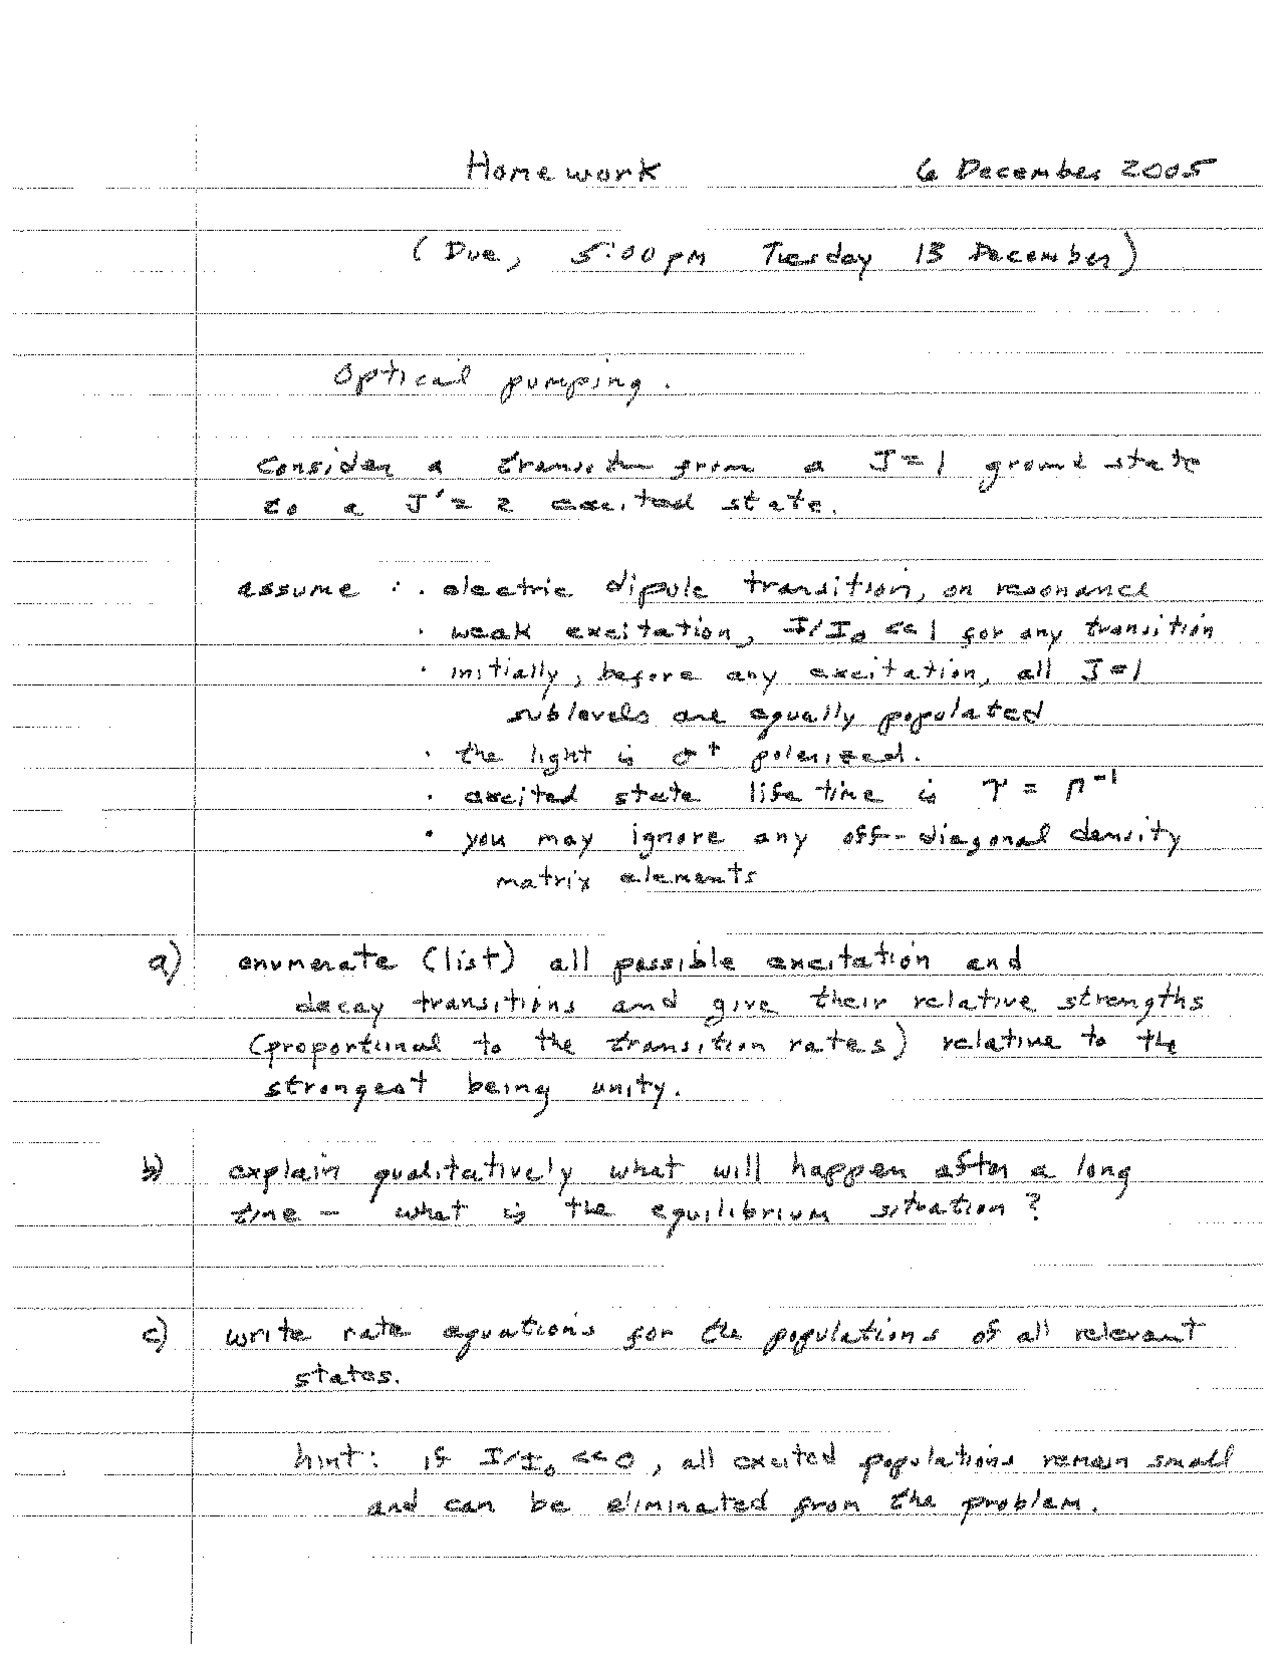 Homework 6 December 2005
(Due, 5:00pm Tuesday 13 December)
Optical pumping.
Consider a transition from a J=1 ground state
to a J'=2 excited state.
assume : · electric dipole transition, on resonance
· weak excitation, I/I₀ << 1 for any transition
· initially, before any excitation, all J=1
sublevels are equally populated
· the light is σ⁺ polarized.
· excited state life time is τ = Γ⁻¹
· you may ignore any off-diagonal density
matrix elements
a) enumerate (list) all possible excitation and
decay transitions and give their relative strengths
(proportional to the transition rates) relative to the
strongest being unity.
b) explain qualitatively what will happen after a long
time - what is the equilibrium situation?
c) write rate equations for the populations of all relevant
states.
hint: if I/I₀ << 0, all excited populations remain small
and can be eliminated from the problem.